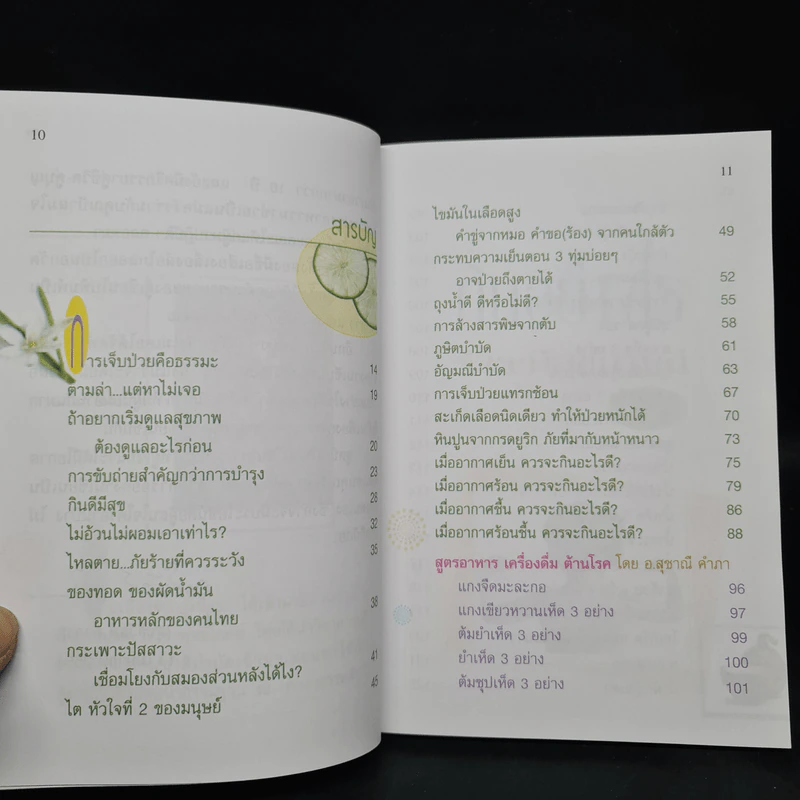 10
สารบัญ
การเจ็บป่วยคือธรรมะ 14
ตามล่า...แต่หาไม่เจอ 19
ถ้าอยากเริ่มดูแลสุขภาพ
ต้องดูแลอะไรก่อน 20
การขับถ่ายสำคัญกว่าการบำรุง 23
กินดีมีสุข 28
ไม่อ้วนไม่ผอมเอาเท่าไร? 32
ไหลตาย...ภัยร้ายที่ควรระวัง 35
ของทอด ของผัดน้ำมัน
อาหารหลักของคนไทย 38
กระเพาะปัสสาวะ
เชื่อมโยงกับสมองส่วนหลังได้ไง? 41
ไต หัวใจที่ 2 ของมนุษย์ 45
11
ไขมันในเลือดสูง
คำขู่จากหมอ คำขอ(ร้อง) จากคนใกล้ตัว 49
กระทบความเย็นตอน 3 ทุ่มบ่อยๆ
อาจป่วยถึงตายได้ 52
ถุงน้ำดี ดีหรือไม่ดี? 55
การล้างสารพิษจากตับ 58
ภูษิตบำบัด 61
อัญมณีบำบัด 63
การเจ็บป่วยแทรกซ้อน 67
สะเก็ดเลือดนิดเดียว ทำให้ป่วยหนักได้ 70
หินปูนจากกรดยูริก ภัยที่มากับหน้าหนาว 73
เมื่ออากาศเย็น ควรจะกินอะไรดี? 75
เมื่ออากาศร้อน ควรจะกินอะไรดี? 79
เมื่ออากาศชื้น ควรจะกินอะไรดี? 86
เมื่ออากาศร้อนชื้น ควรจะกินอะไรดี? 88
สูตรอาหาร เครื่องดื่ม ต้านโรค โดย อ.สุชาณี คำภา
แกงจืดมะละกอ 96
แกงเขียวหวานเห็ด 3 อย่าง 97
ต้มยำเห็ด 3 อย่าง 99
ยำเห็ด 3 อย่าง 100
ต้มซุปเห็ด 3 อย่าง 101